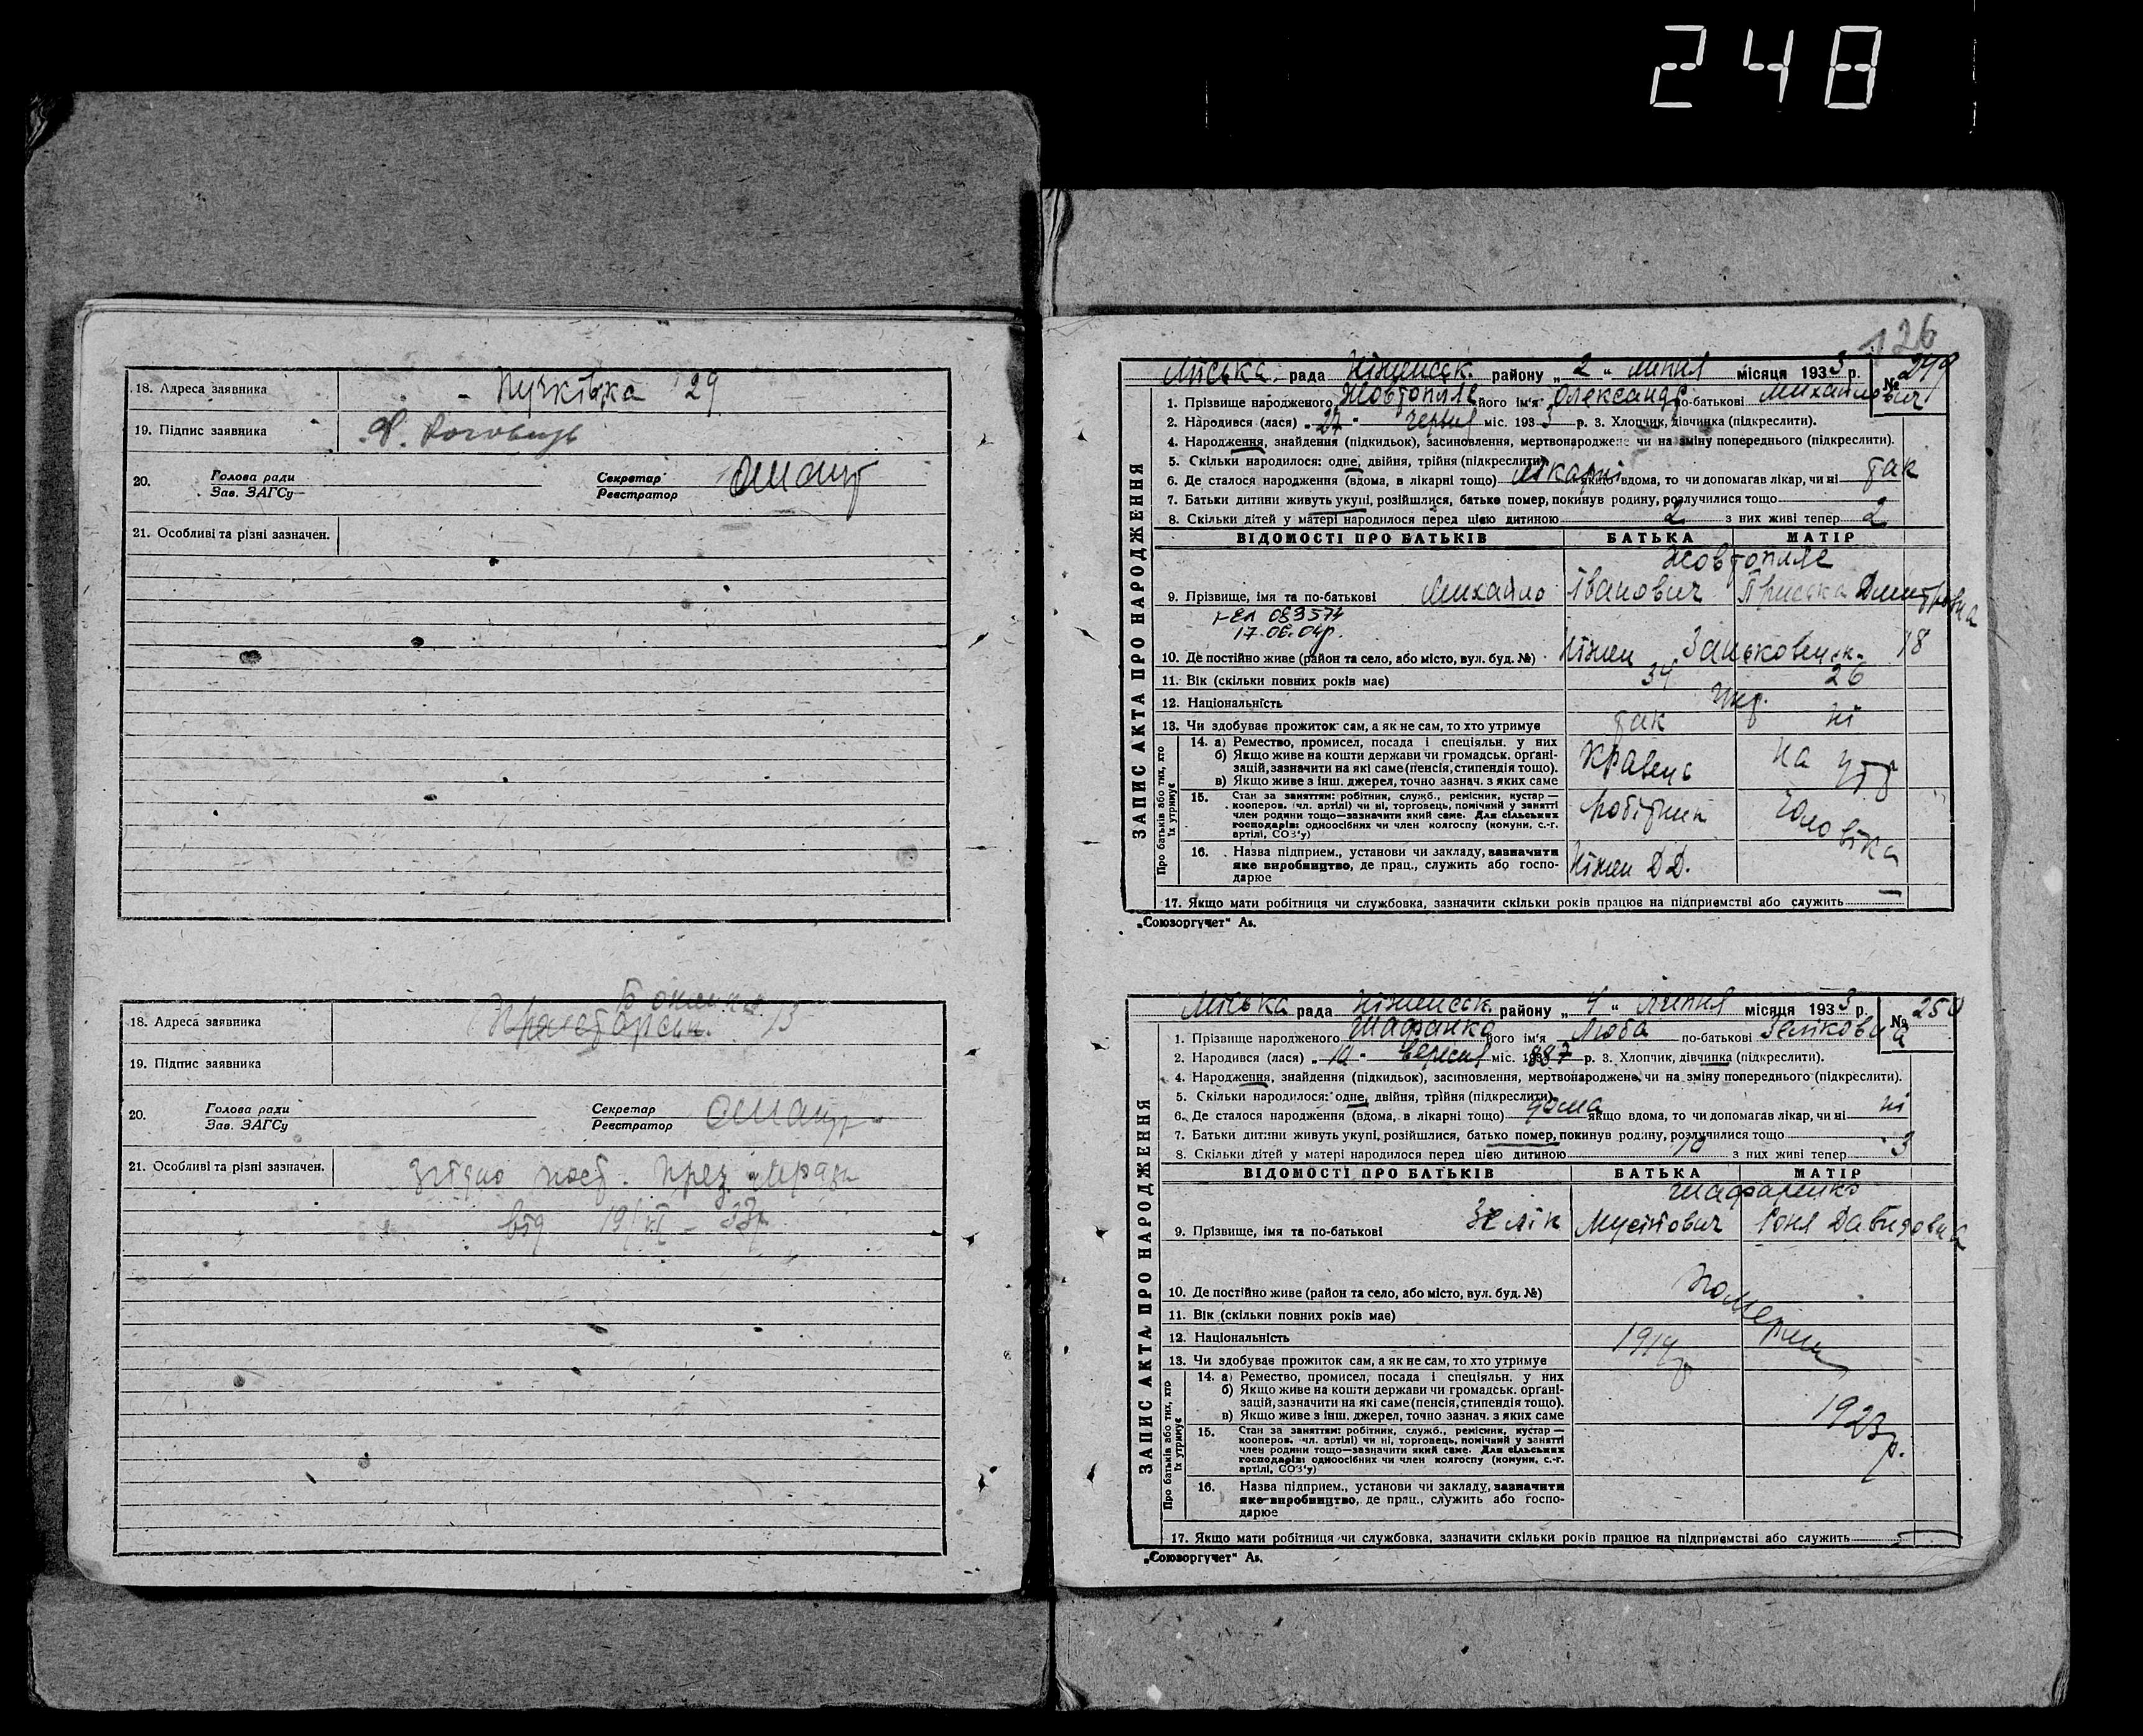 248
18. Адреса заявника Пучківка 29
19. Підпис заявника Ф. Роговець
20. Голова ради Секретар
Зав. ЗАГСу Реєстратор
21. Особливі та різні зазначен.
18. Адреса заявника 13
19. Підпис заявника
20. Голова ради Секретар
Зав. ЗАГСу Реєстратор
21. Особливі та різні зазначен. Згідно пост. През. м/ради
від 19/XI - 33р
126
ЗАПИС АКТА ПРО НАРОДЖЕННЯ
Міська рада Ніженськ. району „ 2 “ липня місяця 1933 р. № 249
1. Прізвище народженого Жовтопляс його ім'я Олександр по-батькові Михайлович
2. Народився (лася) „ 27 “ червня міс. 1933 р. 3. Хлопчик, дівчинка (підкреслити).
4. Народження, знайдення (підкидьок), засиновлення, мертвонароджене чи на зміну попереднього (підкреслити).
5. Скільки народилося: одне, двійня, трійня (підкреслити)
6. Де сталося народження (вдома, в лікарні тощо) лікарні якщо вдома, то чи допомагав лікар, чи ні так
7. Батьки дитини живуть укупі, розійшлися, батько помер, покинув родину, розлучилися тощо
8. Скільки дітей у матері народилося перед цією дитиною 2 з них живі тепер 2
ВІДОМОСТІ ПРО БАТЬКІВ БАТЬКА МАТІР
Жовтопляс
9. Прізвище, імя та по-батькові Михайло Іванович Приська Дмитровна
083574
17.06.04р.
10. Де постійно живе (район та село, або місто, вул. буд. №) Ніжен Заньковецьк. 18
11. Вік (скільки повних років має) 34 26
12. Національність Укр.
13. Чи здобуває прожиток сам, а як не сам, то хто утримує так ні
Про батьків або тих, хто їх утримує
14. а) Ремество, промисел, посада і спеціяльн. у них
б) Якщо живе на кошти держави чи громадськ. органі-
зацій, зазначити на які саме (пенсія, стипендія тощо).
в) Якщо живе з інш. джерел, точно зазнач. з яких саме
Кравець на утр
15. Стан за заняттям: робітник, служб., ремісник, кустар —
кооперов. (чл. артілі) чи ні, торговець, помічний у занятті
член родини тощо—зазначити який саме. Для сільських
господарів: одноосібних чи член колгоспу (комуни, с.-г.
артілі, СОЗ'у)
Робітник чоловіка
16. Назва підприєм., установи чи закладу, зазначити
яке виробництво, де прац., служить або госпо-
дарює
Ніжен Д.Д.
17. Якщо мати робітниця чи службовка, зазначити скільки років працює на підприємстві або служить —
„Союзоргучет“ Ав.
ЗАПИС АКТА ПРО НАРОДЖЕННЯ
Міська рада Ніженськ. району „ 4 “ липня місяця 1933 р. № 250
1. Прізвище народженого його ім'я Люба по-батькові Зеліковна
2. Народився (лася) „ 10 “ вересня міс. 1887 р. 3. Хлопчик, дівчинка (підкреслити).
4. Народження, знайдення (підкидьок), засиновлення, мертвонароджене, чи на зміну попереднього (підкреслити).
5. Скільки народилося: одне, двійня, трійня (підкреслити)
6. Де сталося народження (вдома, в лікарні тощо) дома якщо вдома, то чи допомагав лікар, чи ні ні
7. Батьки дитини живуть укупі, розійшлися, батько помер, покинув родину, розлучилися тощо
8. Скільки дітей у матері народилося перед цією дитиною 10 з них живі тепер 3
ВІДОМОСТІ ПРО БАТЬКІВ БАТЬКА МАТІР
Шафаренко
9. Прізвище, імя та по-батькові Зелік Мусійович Соня Давидовна
10. Де постійно живе (район та село, або місто, вул. буд. №)
Померли
11. Вік (скільки повних років має)
12. Національність 1914 р
13. Чи здобуває прожиток сам, а як не сам, то хто утримує
Про батьків або тих, хто їх утримує
14. а) Ремество, промисел, посада і спеціяльн. у них
б) Якщо живе на кошти держави чи громадськ. органі-
зацій, зазначити на які саме (пенсія, стипендія тощо).
в) Якщо живе з інш. джерел, точно зазнач. з яких саме
1923 р.
15. Стан за заняттям: робітник, служб., ремісник, кустар —
кооперов. (чл. артілі) чи ні, торговець, помічний у занятті
член родини тощо—зазначити який саме. Для сільських
господарів: одноосібних чи член колгоспу (комуни, с.-г.
артілі, СОЗ'у)
16. Назва підприєм., установи чи закладу, зазначити
яке виробництво, де прац., служить або госпо-
дарює
17. Якщо мати робітниця чи службовка, зазначити скільки років працює на підприємстві або служить —
„Союзоргучет“ Ав.